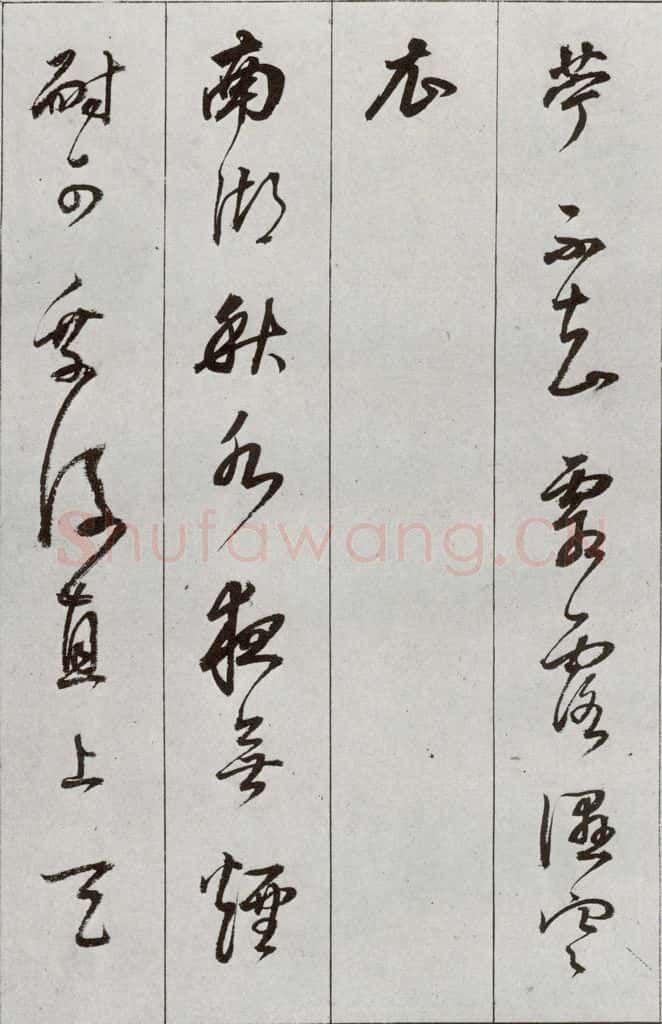 苧不知霜露濕寒
衣
南湖秋水夜無煙
耐可乘流直上天
Shufawang.CN